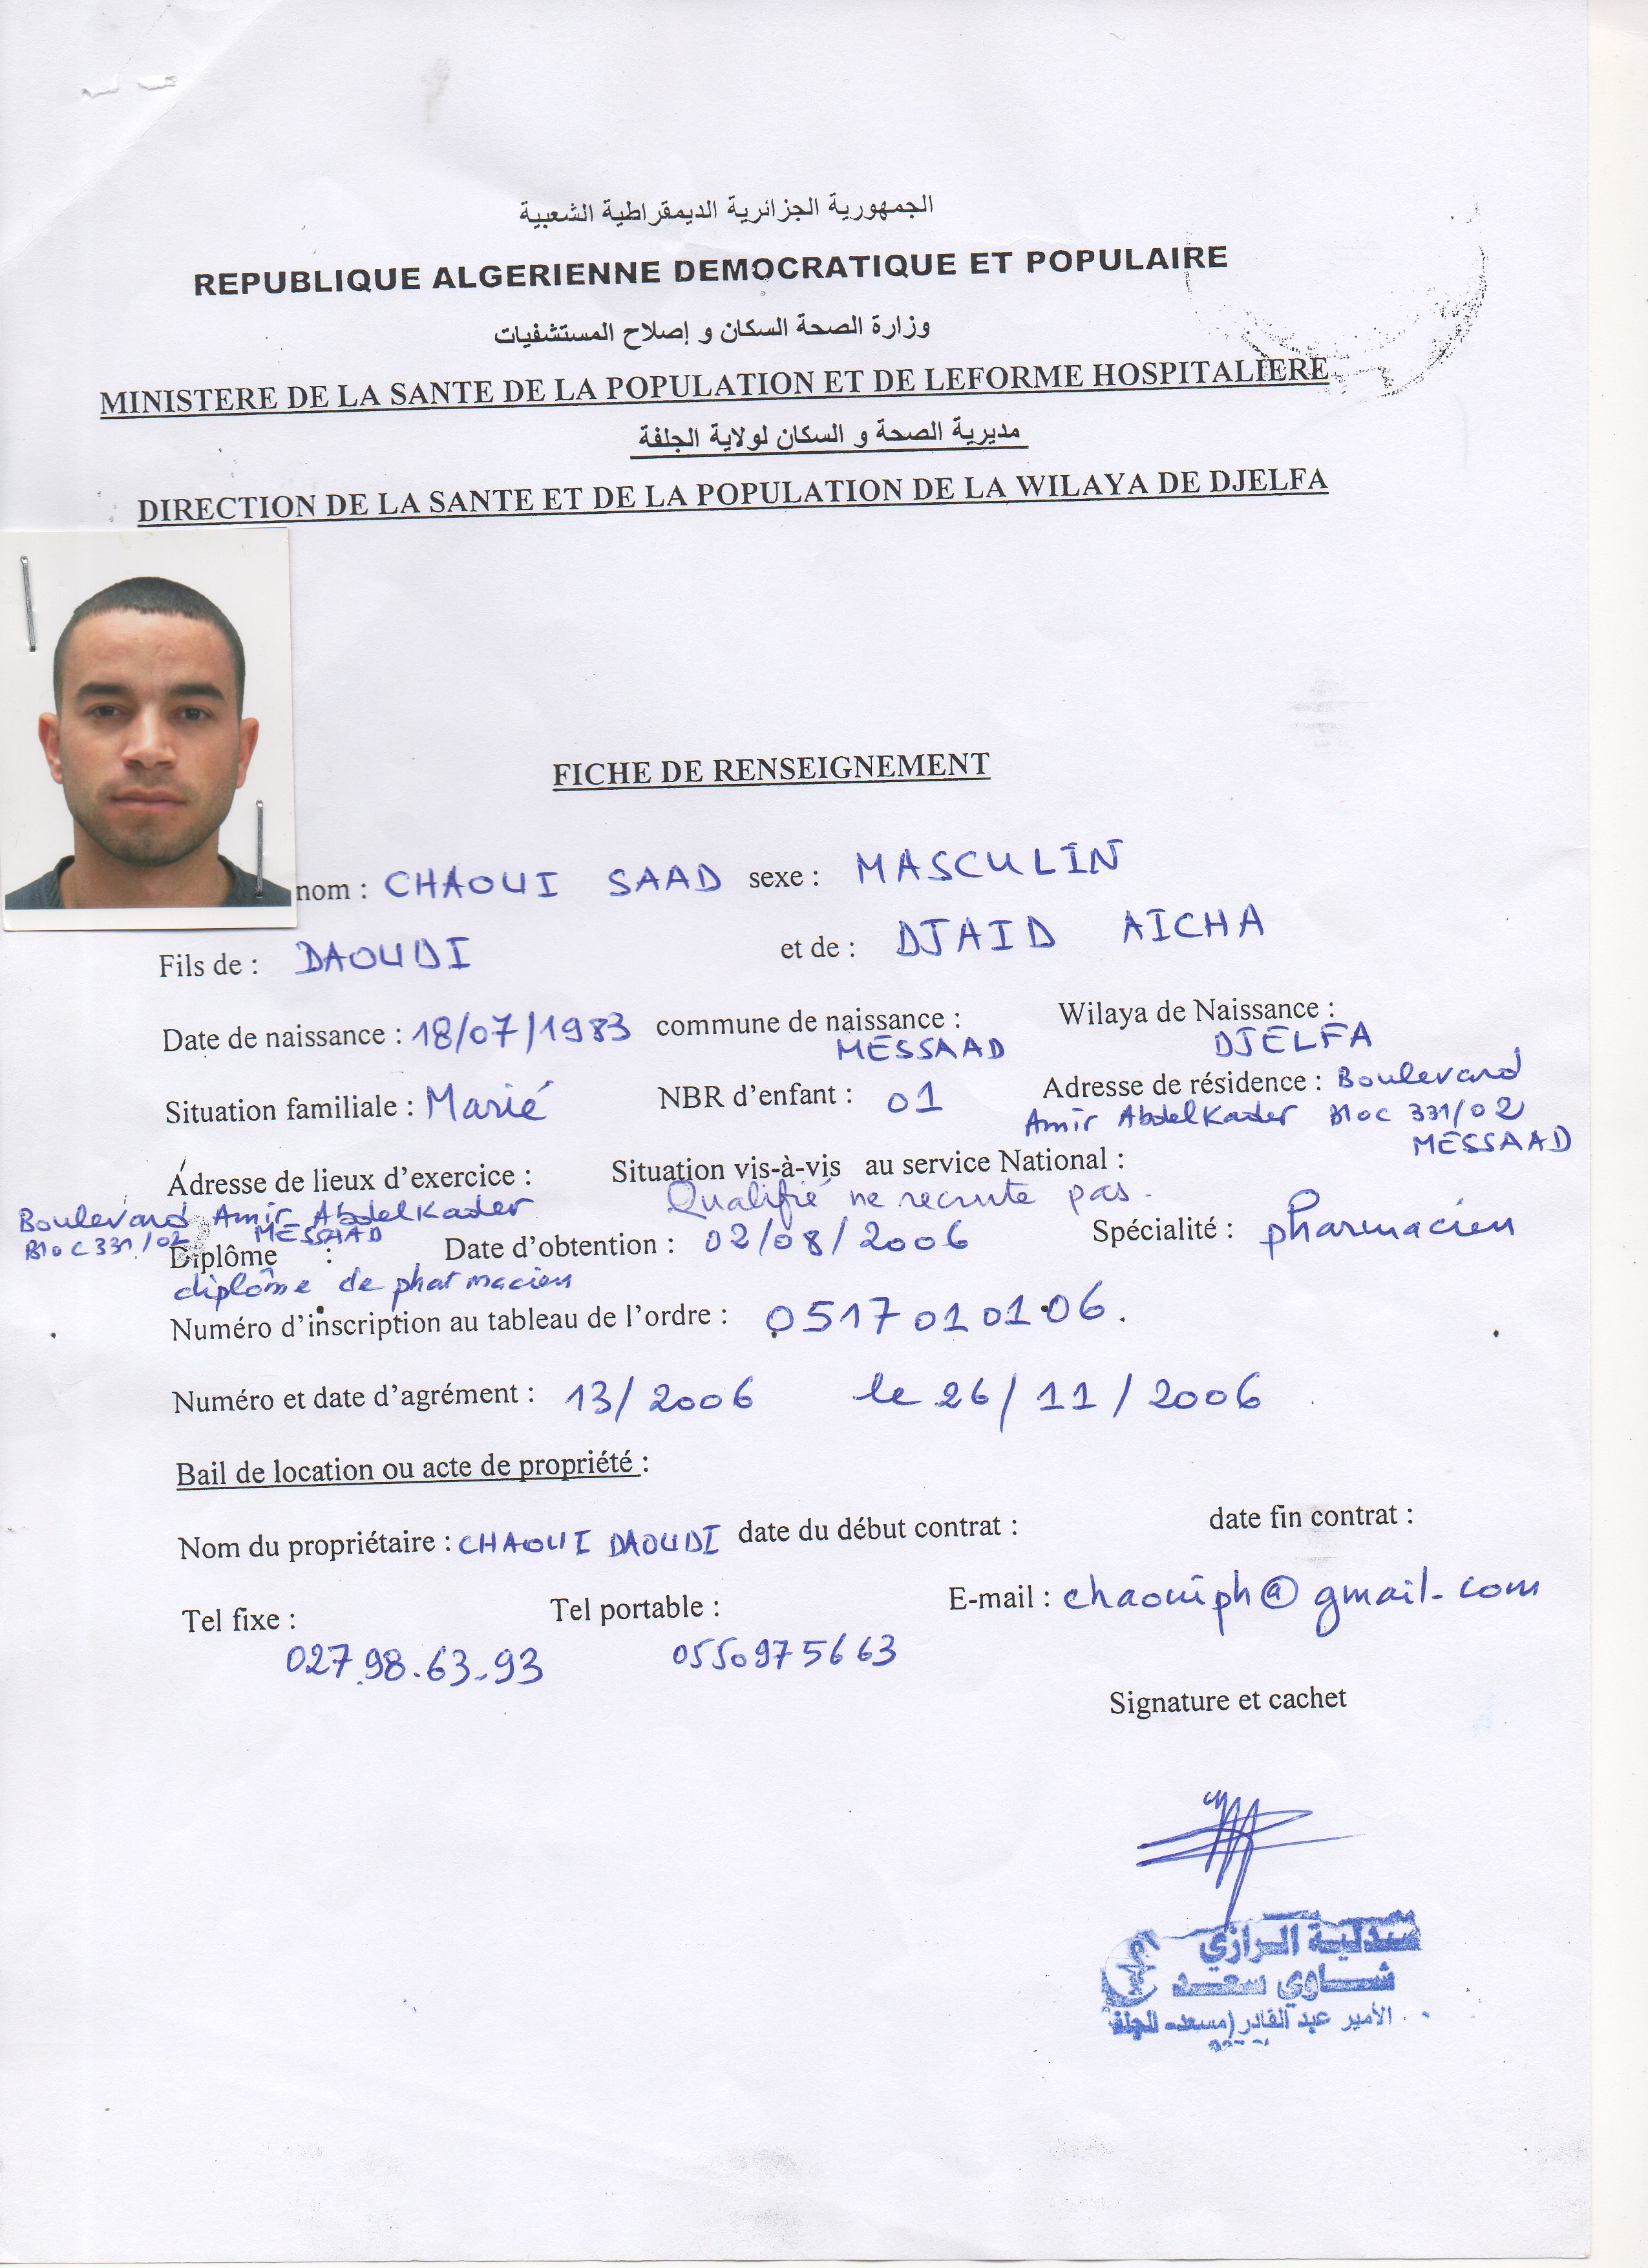 الجمهورية الجزائرية الديمقراطية الشعبية
REPUBLIQUE ALGERIENNE DEMOCRATIQUE ET POPULAIRE
وزارة الصحة السكان و إصلاح المستشفيات
MINISTERE DE LA SANTE DE LA POPULATION ET DE LEFORME HOSPITALIERE
مديرية الصحة و السكان لولاية الجلفة
DIRECTION DE LA SANTE ET DE LA POPULATION DE LA WILAYA DE DJELFA
FICHE DE RENSEIGNEMENT
nom : CHAOUI SAAD sexe : MASCULIN
Fils de : DAOUDI et de : DJAID AICHA
Date de naissance : 18/07/1983 commune de naissance : Wilaya de Naissance :
MESSAAD DJELFA
Situation familiale : Marié NBR d'enfant : 01 Adresse de résidence : Boulevard
Amir Abdelkader Bloc 331/02
MESSAAD
Adresse de lieux d'exercice : Situation vis-à-vis au service National :
Boulevard Amir Abdelkader Qualifié ne recrute pas.
Bloc 331/02 MESSAAD
Diplôme : Date d'obtention : 02/08/2006 Spécialité : pharmacien
diplôme de pharmacien
Numéro d'inscription au tableau de l'ordre : 0517010106.
Numéro et date d'agrément : 13/2006 le 26/11/2006
Bail de location ou acte de propriété :
Nom du propriétaire : CHAOUI DAOUDI date du début contrat : date fin contrat :
Tel fixe : Tel portable : E-mail : chaouiph@gmail.com
027.98.63.93 0550975663
Signature et cachet
الرازي
شاوي سعد
الأمير عبد القادر (مسعد-